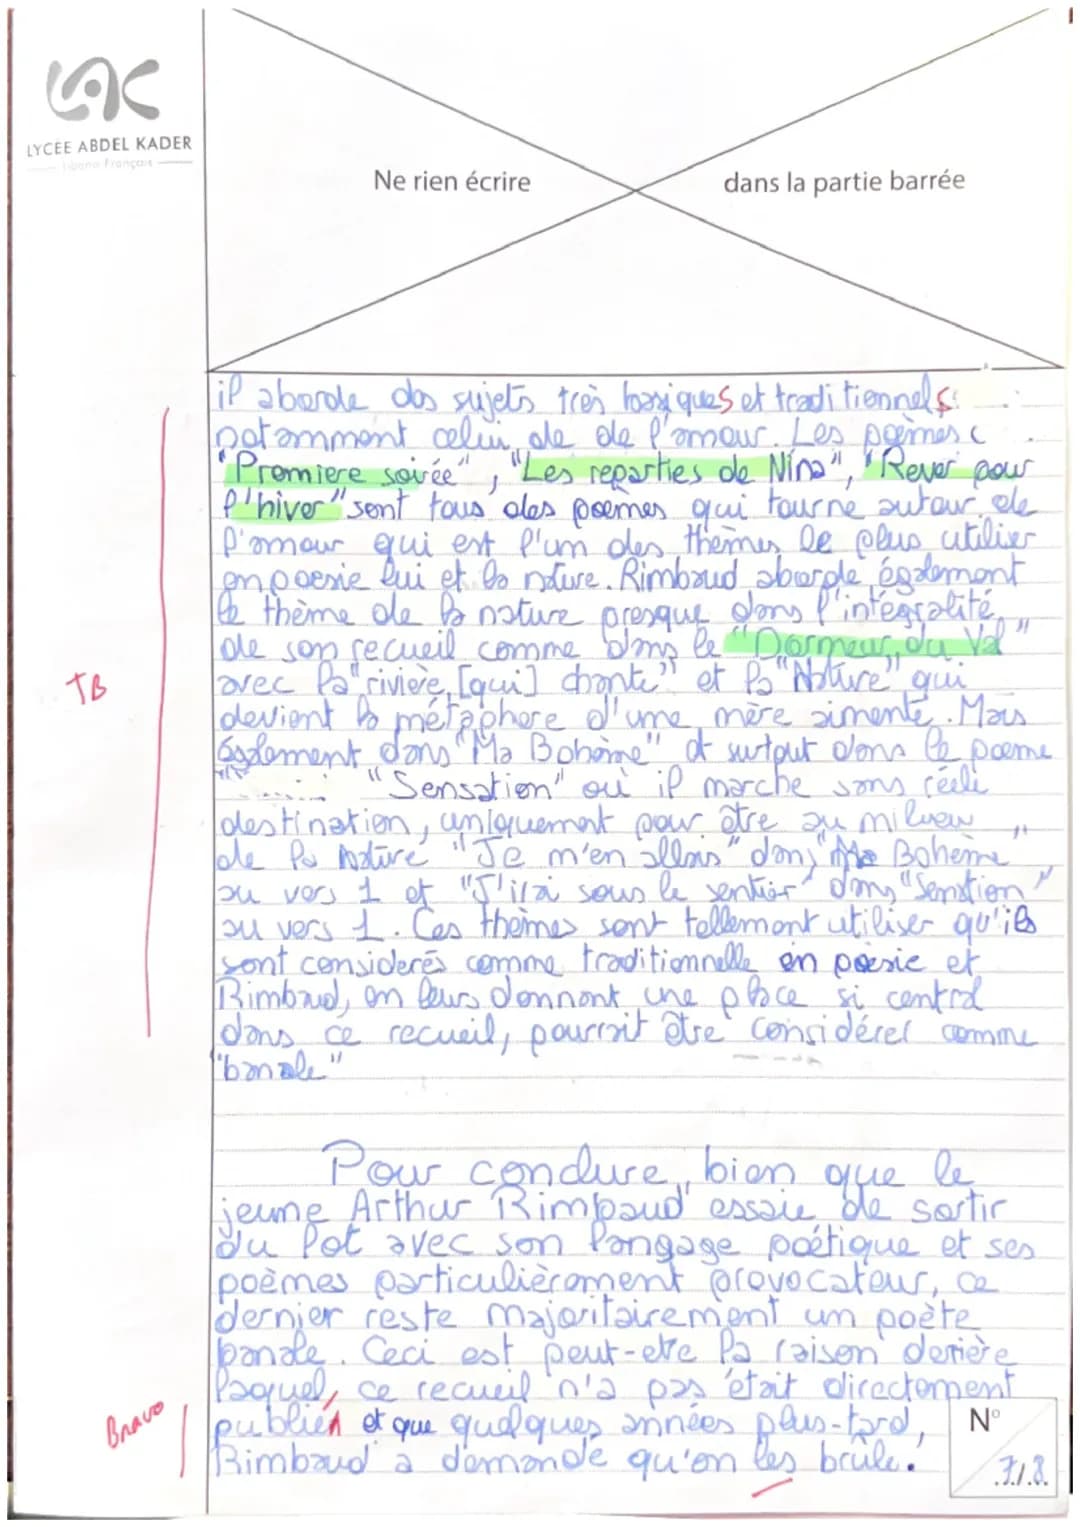 LAC
LYCÉE ABDEL KADER
Libano Français
Ne rien écrire
dans la partie barrée
il aborde des sujets très basiques et traditionnels
notamment celui de de l'amour. Les poèmes
"Premiere soirée", "Les reparties de Nina", "Rever pour
l'hiver" sont tous des poemes qui tourne autour de
l'amour qui est l'un des themes le plus utiliser
en poesie lui et la nature. Rimbaud aborde également
le thème de la nature presque dans l'intégralité
de son recueil comme dans le "Dormeur du Val"
avec la "rivière [qui] chante" et la "Nature" qui
devient la métaphore d'une mère aimante. Mais
également dans "Ma Bohème" et surtout dans le poeme
"Sensation" où il marche sans réele
destination, uniquement pour être au milieu
de la nature "Je m'en allais" dans "Ma Bohème"
au vers 1 et "J'irai sous le sentier" dans "Sensation"
au vers 1. Ces themes sont tellement utiliser qu'ils
sont considerés comme traditionnelle en poesie et
Rimbaud, en leurs donnant une place si central
dans ce recueil, pourrait être considérer comme
"banale"
TB
Pour conclure, bien que le
jeune Arthur Rimbaud essaie de sortir
du lot avec son langage poétique et ses
poèmes particulièrement provocateur, ce
dernier reste majoritairement un poète
banale. Ceci est peut-etre la raison derière
laquel, ce recueil n'a pas était directement
publié et que quelques années plus-tard,
Rimbaud a demande qu'on les brûle.
Bravo
N°
7/8